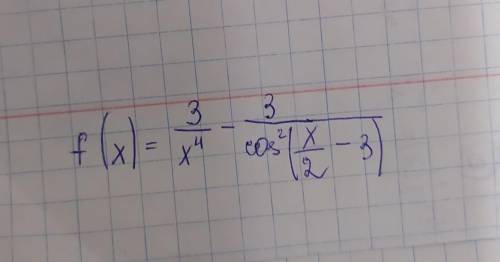 f(x) = 3/x⁴ - 3/cos²(x/2 - 3)